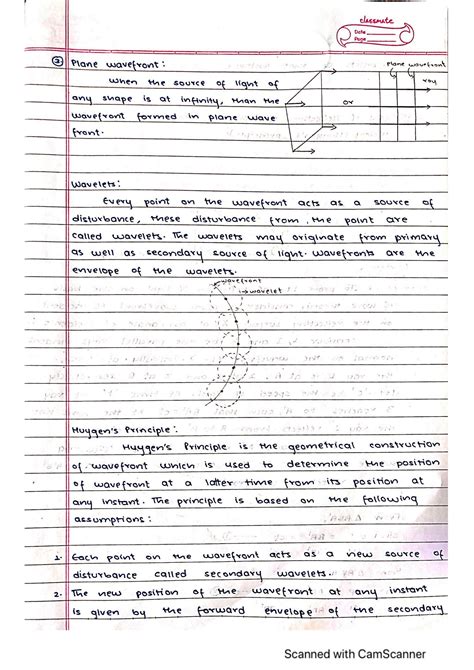 classmate
Date
Page
② Plane wavefront:
When the source of light of
any shape is at infinity, than the
wavefront formed in plane wave
front.
or
Plane wavefront
ray
Wavelets:
Every point on the wavefront acts as a source of
disturbance, these disturbance from, the point are
called wavelets. The wavelets may originate from primary
as well as secondary source of light. Wavefronts are the
envelope of the wavelets.
wavefront
→wavelet
Huygen's Principle:
Huygen's Principle is the geometrical construction
of wavefront which is used to determine the position
of wavefront at a latter time from its position at
any instant. The principle is based on the following
assumptions:
1. Each point on the wavefront acts as a new source of
disturbance called secondary wavelets.
2. The new position of the wavefront at any instant
is given by the forward envelope of the secondary
Scanned with CamScanner